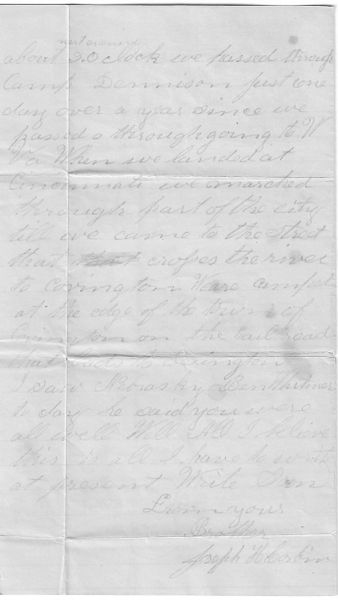 about 2 O clock we passed through
Camp Dennison just one
day over a year since we
passed a through going to W
Va When we landed at
Cincinnati we marched
through part of the city
till we came to the street
that crosses the river
to Covington We are camped
at the edge of the town of
Covington on the rail road
that leads to Lexington
I saw
to day he said you were
all well Well I believe
this is all I have to write
at present Write Soon
From your
Brother
Joseph